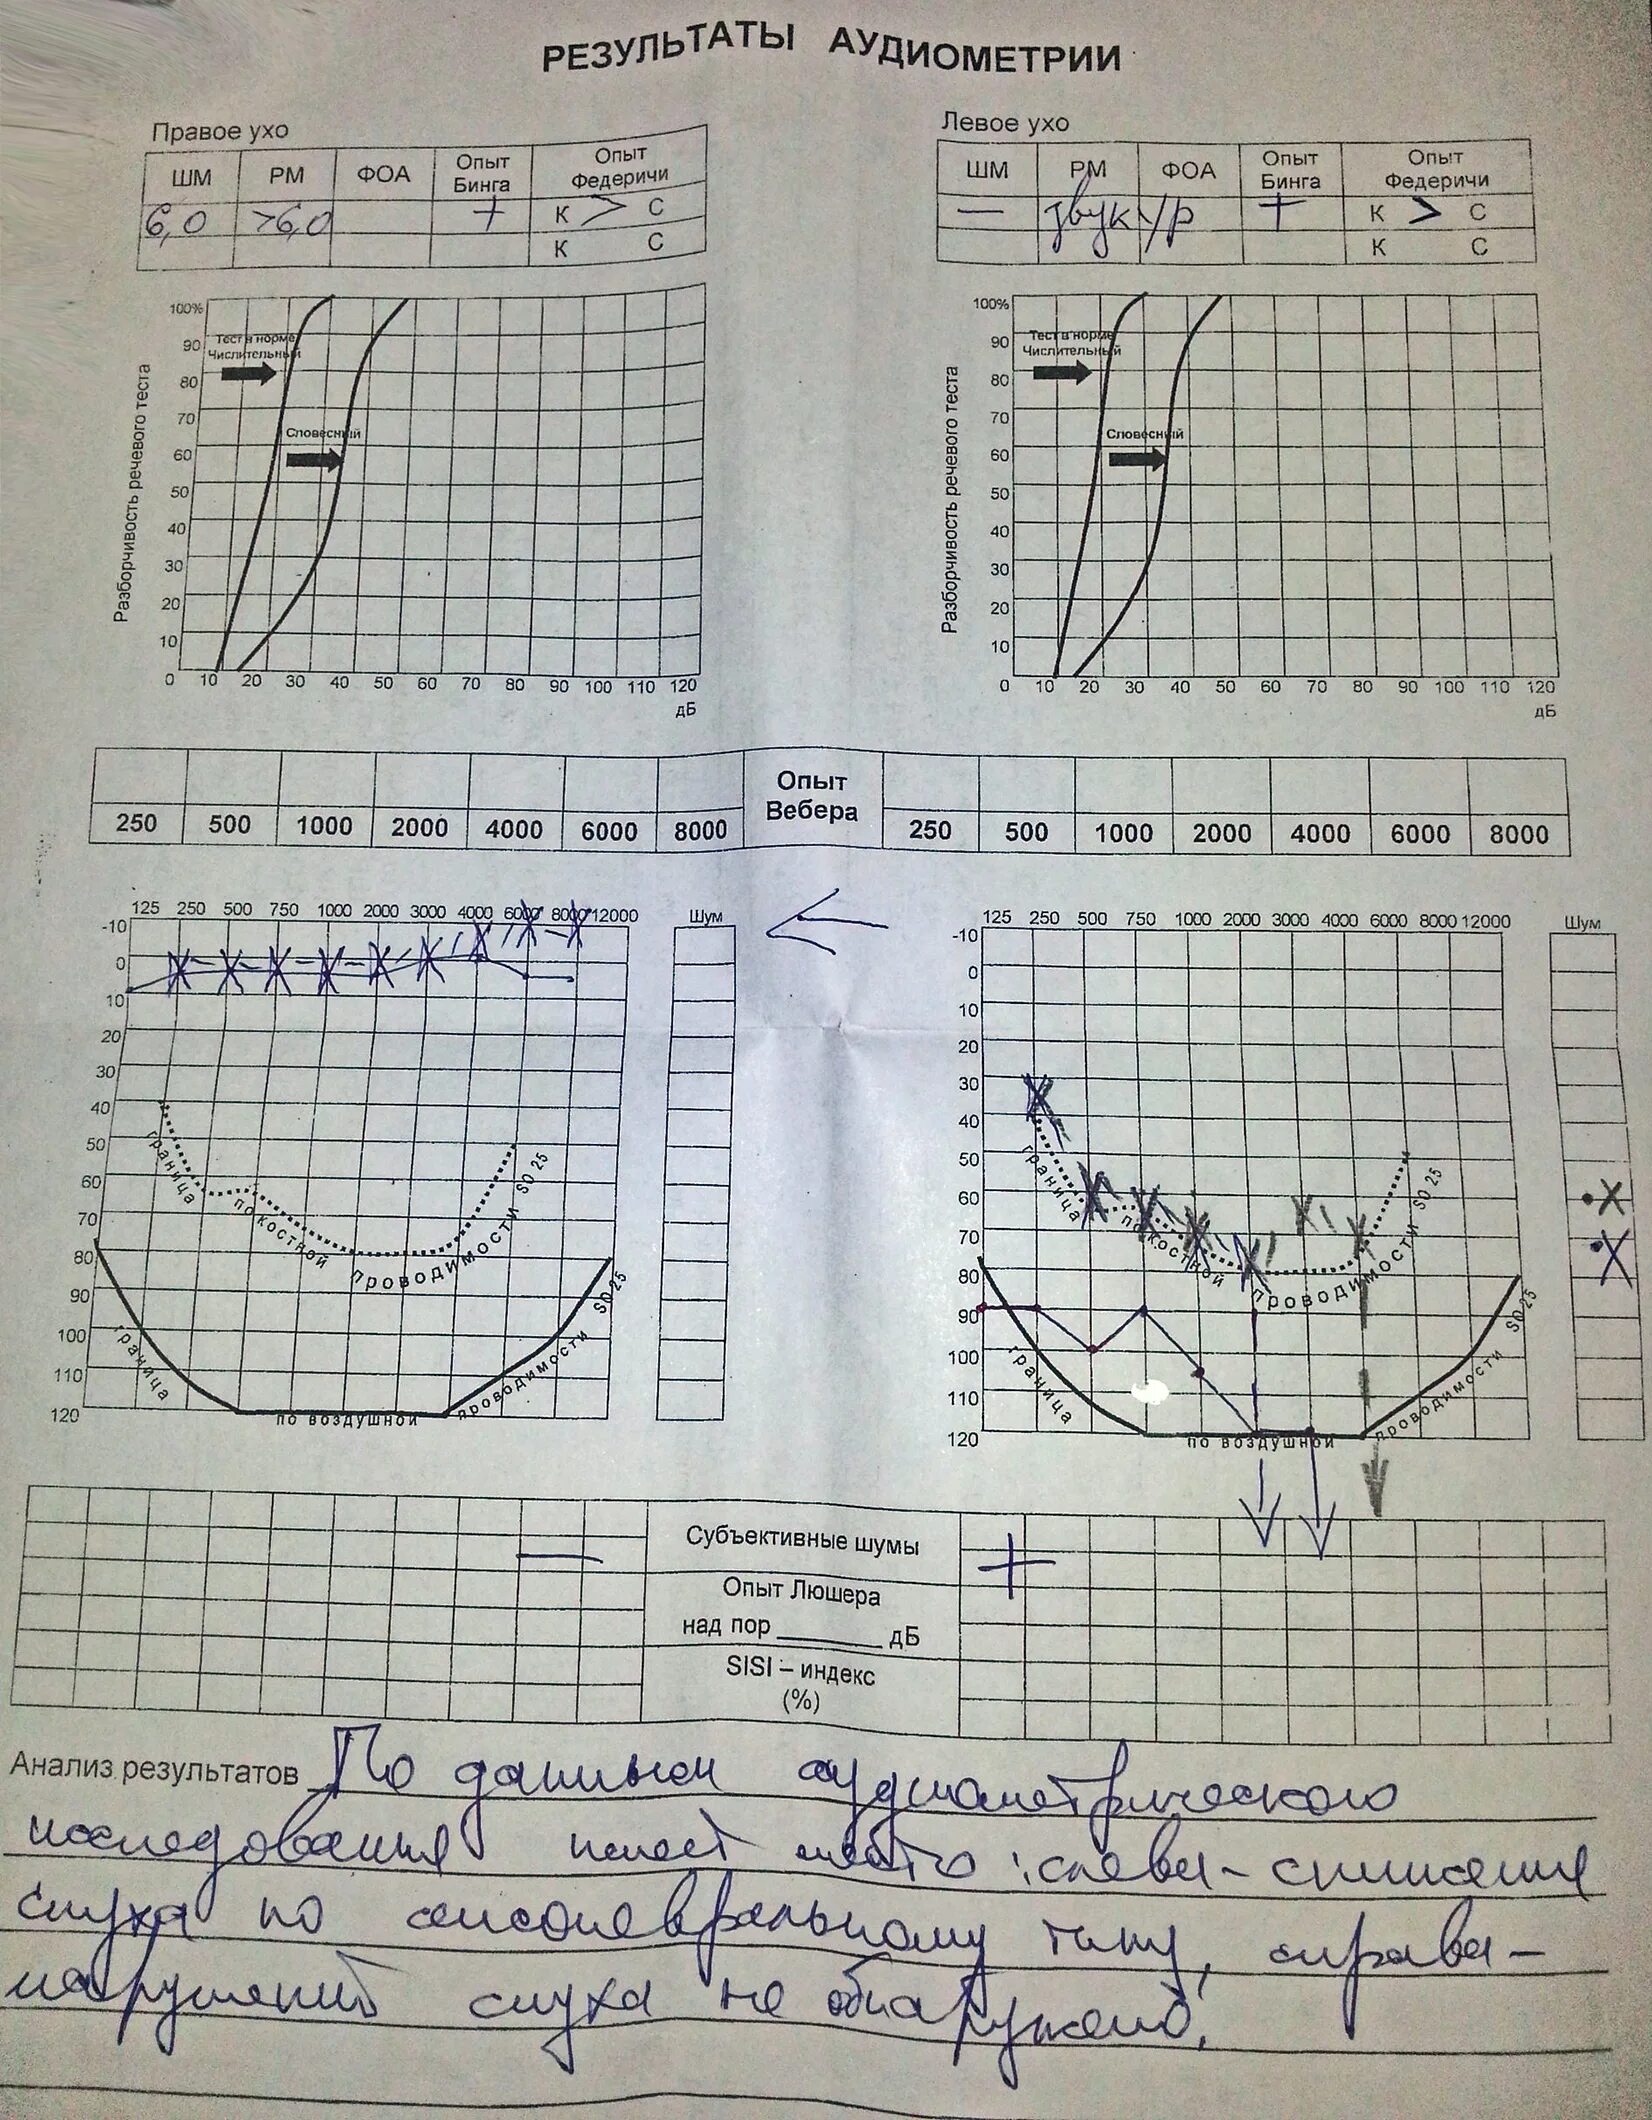 РЕЗУЛЬТАТЫ АУДИОМЕТРИИ
Правое ухо
ШМ РМ ФОА Опыт Бинга Опыт Федеричи
6,0 >6,0 + К > С
К С
Левое ухо
ШМ РМ ФОА Опыт Бинга Опыт Федеричи
— звук у/р + К > С
К С
Разборчивость речевого теста
100%
90
80
70
60
50
40
30
20
10
Тест в норме
Числительный
Словесный
0 10 20 30 40 50 60 70 80 90 100 110 120
дБ
Разборчивость речевого теста
100%
90
80
70
60
50
40
30
20
10
Тест в норме
Числительный
Словесный
0 10 20 30 40 50 60 70 80 90 100 110 120
дБ
Опыт
Вебера
250 500 1000 2000 4000 6000 8000
250 500 1000 2000 4000 6000 8000
125 250 500 750 1000 2000 3000 4000 6000 8000 12000
Шум
-10
0
10
20
30
40
50
60
70
80
90
100
110
120
граница по костной проводимости SD 25
граница по воздушной проводимости SD 25
125 250 500 750 1000 2000 3000 4000 6000 8000 12000
Шум
-10
0
10
20
30
40
50
60
70
80
90
100
110
120
граница по костной проводимости SD 25
граница по воздушной проводимости SD 25
— Субъективные шумы +
Опыт Люшера
над пор ______ дБ
SISI – индекс
(%)
Анализ результатов По данным аудиометрического
исследования имеет место: слева - снижение
слуха по сенсоневральному типу, справа -
нарушений слуха не обнаружено.